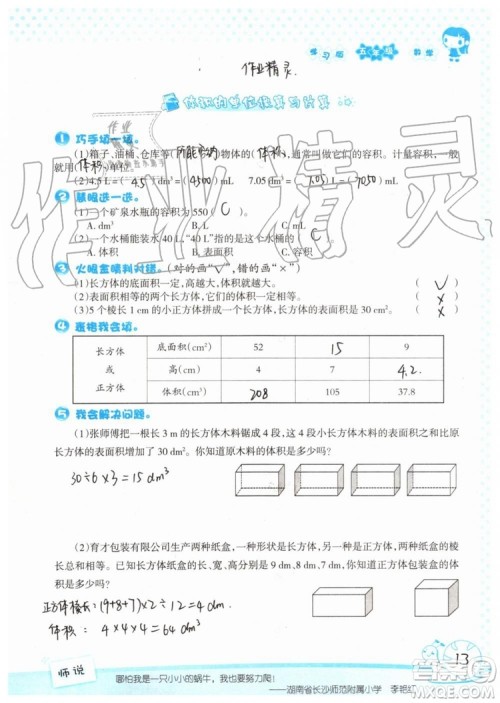 练习版 五年级 数学
作业精灵
体积的单位换算与计算
1 巧手填一填。
(1)箱子、油桶、仓库等(所能容纳)物体的(体积),通常叫做它们的容积。计量容积,一般
就用(体积)单位。
(2)4.5 L=(4.5)dm³=(4500)mL 7.05 dm³=(7.05)L=(7050)mL
2 慧眼选一选。
(1)一个矿泉水瓶的容积为 550( C )。
A. dm³ B. L C. mL
(2)一个水桶能装水 40 L,“40 L”指的是这个水桶的( C )。
A. 表面积 B. 体积 C. 容积
3 火眼金睛判对错。(对的画“√”,错的画“×”)
(1)长方体的底面积一定,高越大,体积就越大。 (√)
(2)表面积相等的两个长方体,它们的体积一定相等。 (×)
(3)5 个棱长 1 cm 的小正方体拼成一个长方体,长方体的表面积是 30 cm²。 (×)
4 表格我会填。
长方体 或 正方体
底面积(cm²) 52 15 9
高(cm) 4 7 4.2
体积(cm³) 208 105 37.8
5 我会解决问题。
(1)张师傅把一根长 3 m 的长方体木料锯成 4 段,这 4 段小长方体木料的表面积之和比原
长方体木料的表面积增加了 30 dm²。你知道原木料的体积是多少吗?
30÷6×3=15 dm³
(2)育才包装有限公司生产两种纸盒,一种形状是长方体,另一种是正方体,两种纸盒的棱
长总和相等。已知长方体纸盒的长、宽、高分别是 9 dm、8 dm、7 dm,你知道正方体包装盒的体
积是多少吗?
正方体棱长:(9+8+7)×2÷12=4dm
体积:4×4×4=64dm³
13
师说
哪怕我是一只小小的蜗牛,我也要努力爬!
——湖南省长沙师范附属小学 李艳红